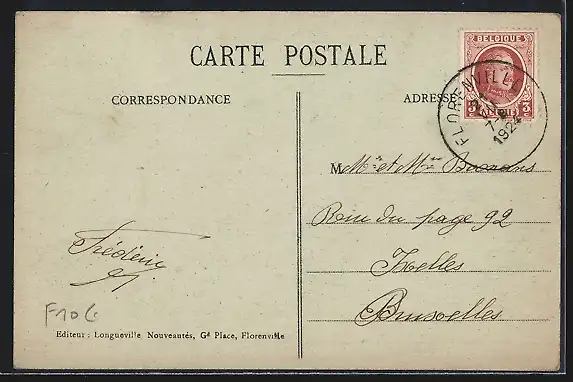 CARTE POSTALE
CORRESPONDANCE
ADRESSE
BELGIQUE
3 3
FLORENVILLE
1924
Mr et Mme
Rue du page 92
Ixelles
Bruxelles
Frédéric
F10C
Editeur : Longueville Nouveautés, Gd Place, Florenville